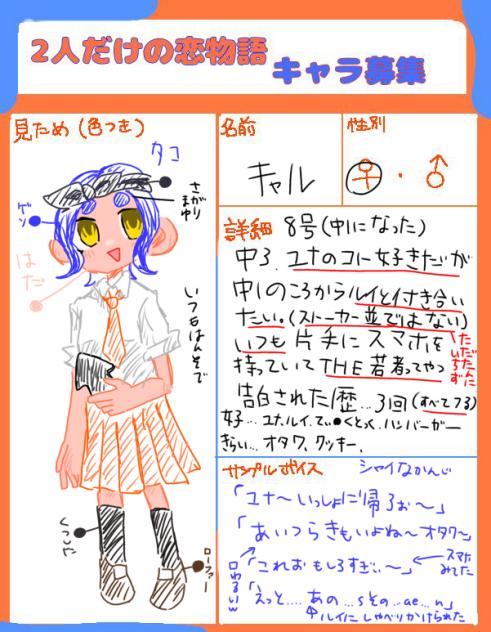 2人だけの恋物語
キャラ募集
見ため(色つき)
タコ
さがり
まゆ
ゲソ
はだ
いつもはんそで
くつした
ローファー
名前
キャル
性別
♀・♂
詳細 8号(中になった)
中3.ユナのコト好きだが
中1のころからルイと付き合い
たい。(ストーカー並ではない)
いつも片手にスマホを
持っていてTHE若者ってやつ
告白された歴…3回(すべてフる)
ユナ.ルイ.てぃ●くとっく.ハンバーガー
きらい…オタク.クッキー.
サンプルボイス
シャイなかんじ
「ユナ〜いっしょに帰ろぉ〜」
「あいつらきもいよね〜オタク〜」
「これおもしろすぎぃ〜」
スマホ
みてた
口わるいw
「えっと....あの...sその...ae...n」
ルイにしゃべりかけられた